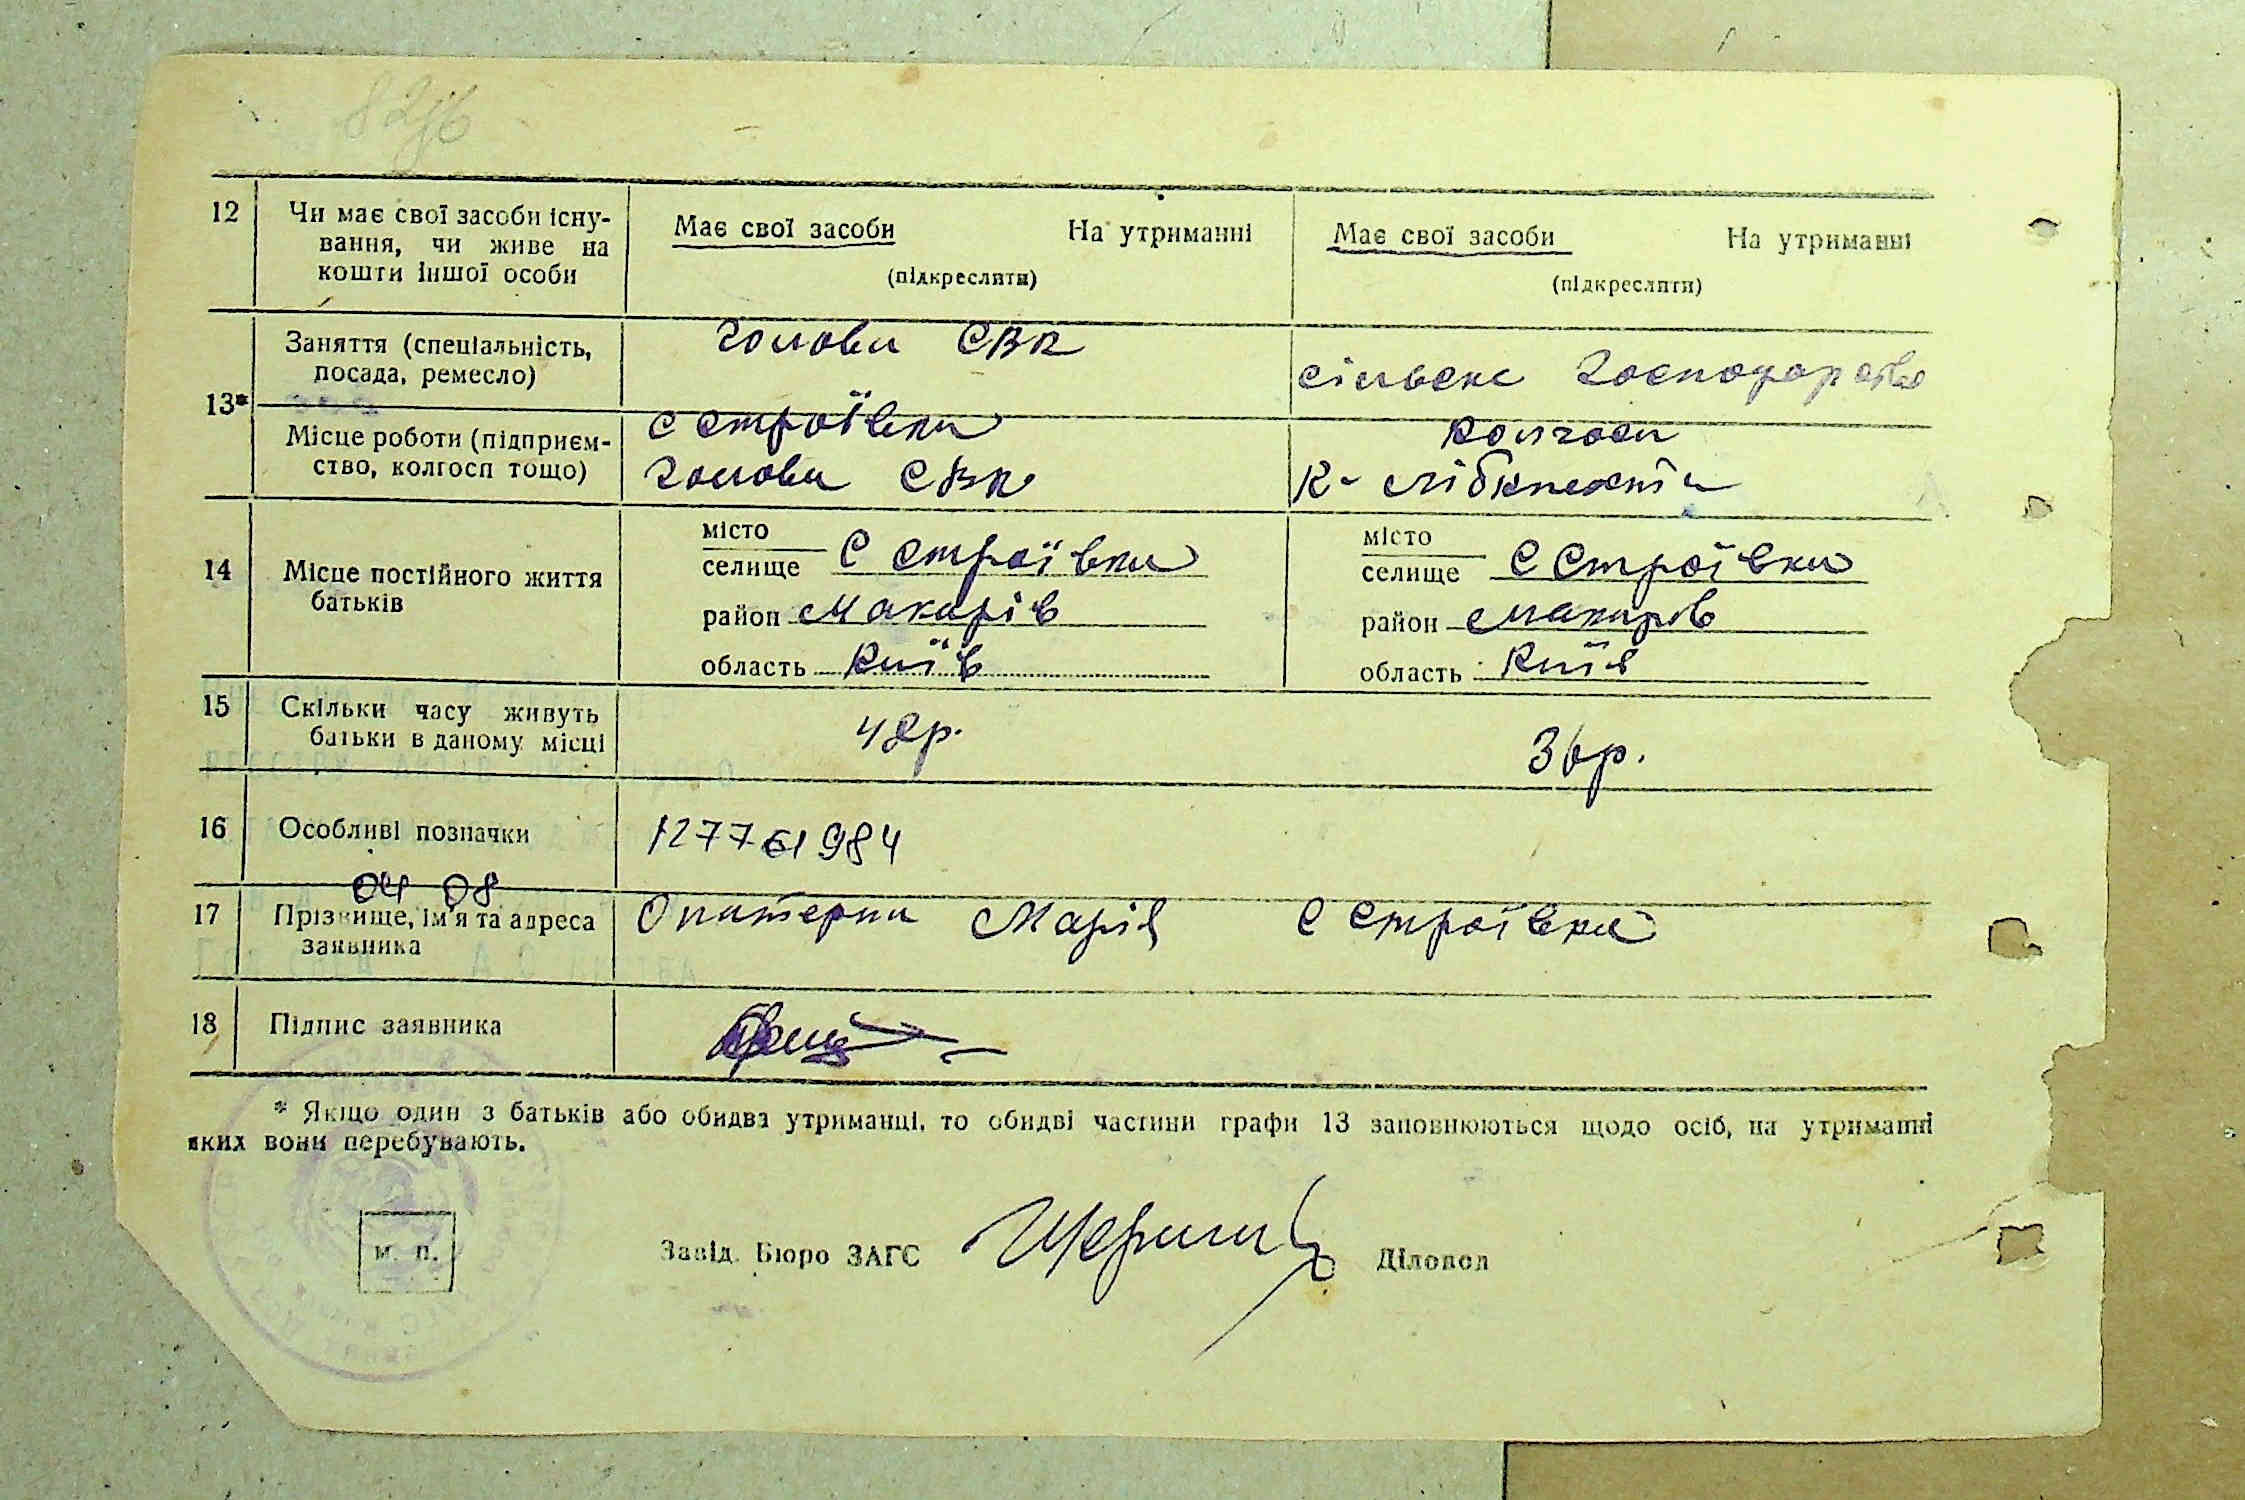 12 Чи має свої засоби існу-
вання, чи живе на
кошти іншої особи
Має свої засоби На утриманні
(підкреслити)
Має свої засоби На утриманні
(підкреслити)
13*
Заняття (спеціальність,
посада, ремесло)
голова СВК
сільське господарство
Місце роботи (підприєм-
ство, колгосп тощо)
С Строївка
голова СВК
колгосп
К- Лібкнехта
14 Місце постійного життя
батьків
місто
селище С Строївка
район Макарів
область Київ
місто
селище С Строївка
район Макарів
область Київ
15 Скільки часу живуть
батьки в даному місці
42р.
36р.
16 Особливі позначки
127761984
04 08
17 Прізвище, ім'я та адреса
заявника
Марія С Строївка
18 Підпис заявника
* Якщо один з батьків або обидва утриманці, то обидві частини графи 13 заповнюються щодо осіб, на утриманні
яких вони перебувають.
м. п.
Завід. Бюро ЗАГС Діловод